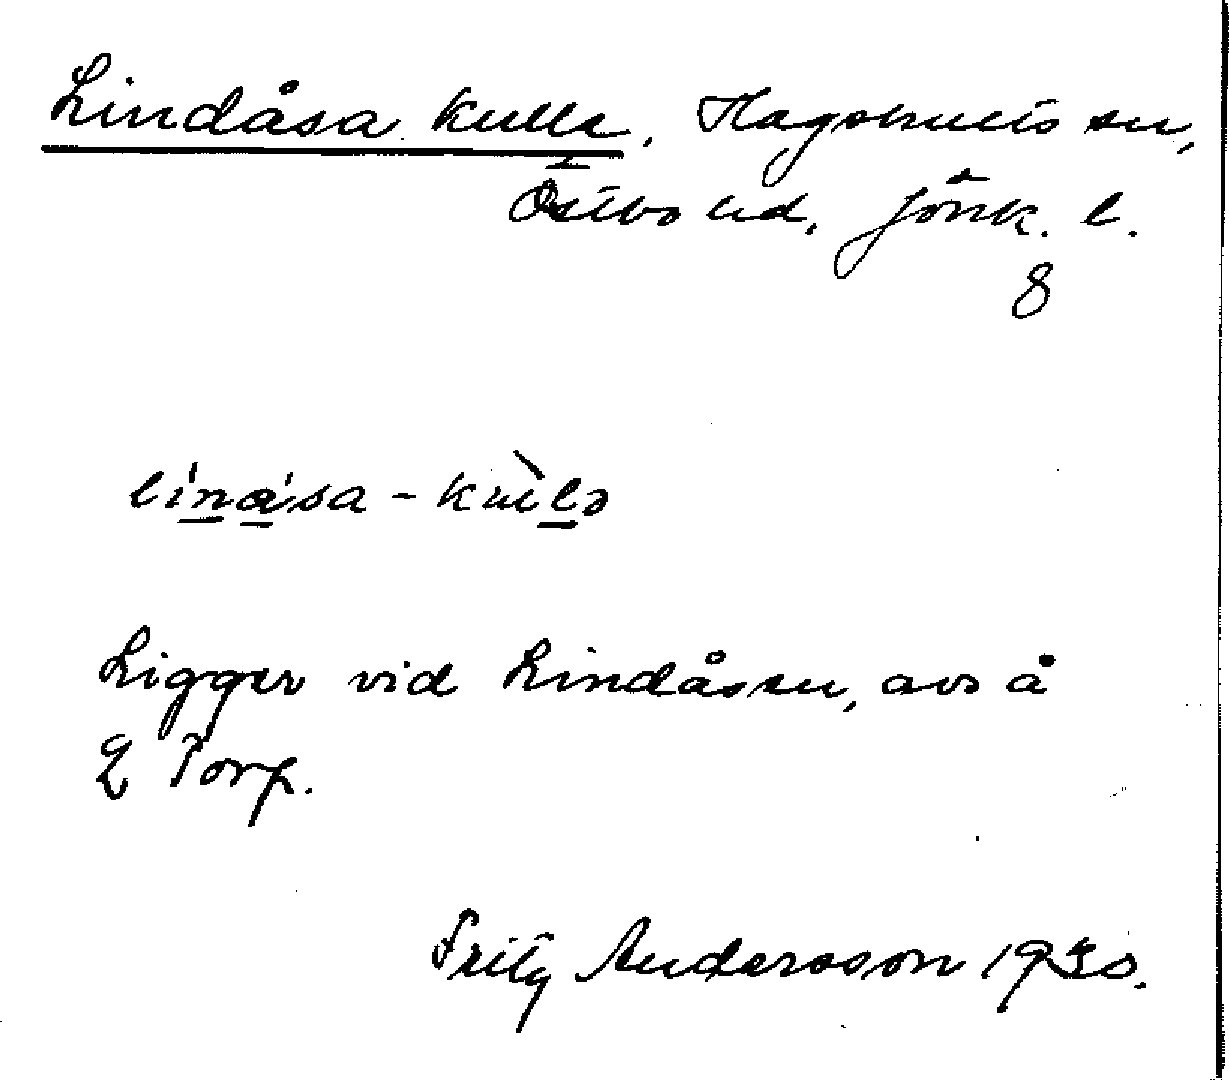 Lindåsa kulle, Hagshults sn,
Östbo hd, Jönk. l.
8
li'na'sa - kùlə
Ligger vid Lindåsen, avs å
Torp.
Fritz Andersson 1930.